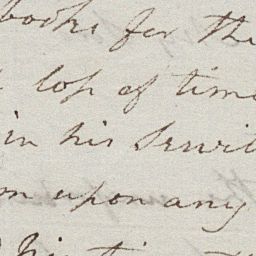 books for the
loss of time
in his Servit
m upon any